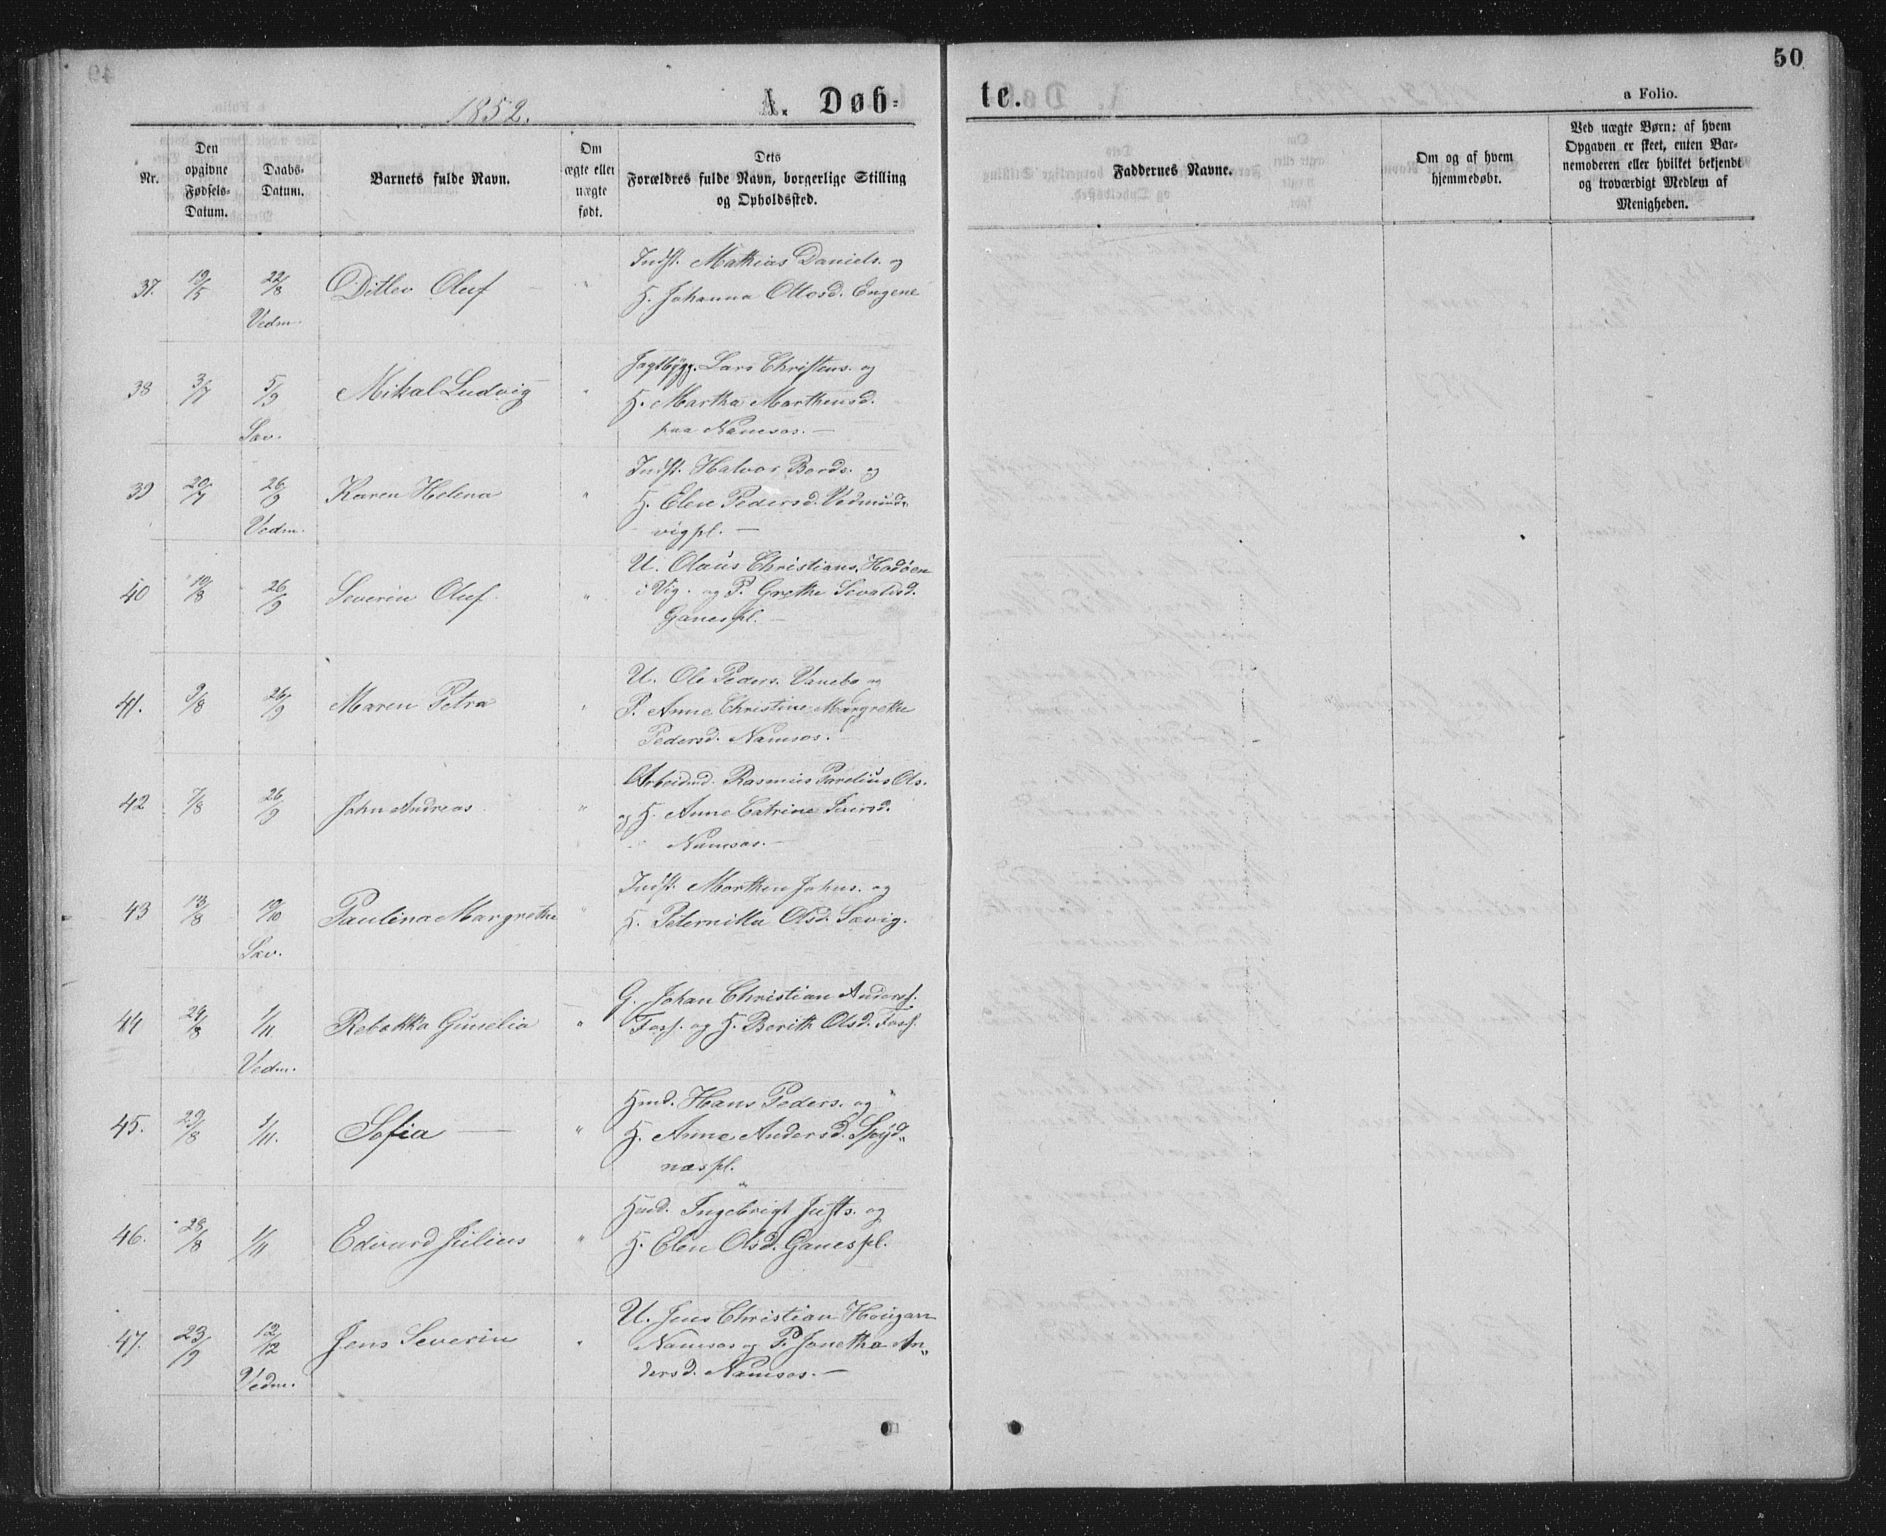 50
1852.
A. Døb-
te.
a Folio.
Nr.
Den
opgivne
Fødsels-
Datum.
Daabs-
Datum.
Barnets fulde Navn.
Om
ægte eller
uægte
født.
Dets
Forældres fulde Navn, borgerlige Stilling
og Opholdssted.
Faddernes Navne.
Om og af hvem
hjemmedøbt.
Ved uægte Børn: af hvem
Opgaven er skeet, enten Bar-
nemoderen eller hvilket bekjendt
og troværdigt Medlem af
Menigheden.
37. 19/5 22/8 Ditlev Oluf — " Indst. Mathias Daniels. og
H. Johanna Ottosd. Engene
Vedm.
38 3/7 5/9 Mikal Ludvig " Jagtbygg. Lars Christens. og
H. Martha Marthensd.
Sav. paa Namsos. —
39 20/7 26/9 Karen Helena " Indst. Halvor Bords. og
H. Elen Pedersd. Vedmunds
Vedm. vigpl. —
40 19/8 26/9 Severin Oluf. " U. Olaus Christians. Hodøen
i Vig. og P. Grethe Sevaldsd.
Ganespl. —
41. 9/8 26/9 Maren Petra " U. Ole Peders. Vanebo og
P. Anne Christine Margrethe
Pedersd. Namsos. —
42 7/8 26/9 John Andreas " Arbeidsmd. Rasmus Parelius Ols.
og H. Anne Catrine
Namsos. —
43 13/8 10/10 Paulina Margrethe " Indst. Morthen Johns. og
H. Peternilla Olsd. Sævig.
Sæv.
44 24/8 1/11 Rebekka Gunelia " G. Johan Christian Anderss.
Foss. og H. Berith Olsd. Foss.
Vedm.
45. 29/8 1/11. Sofia — " Hmd. Hans Peders. og
H. Anne Andersd. Spyd„
næspl.
46. 28/8 1/11 Edvard Julius " Hmd. Ingebrigt Justs. og
H. Elen Olsd. Ganespl.
47. 23/9 12/12 Jens Severin " U. Jens Christian Hougan
Namsos og P. Janetha An„
Vedm. dersd. Namsos. —